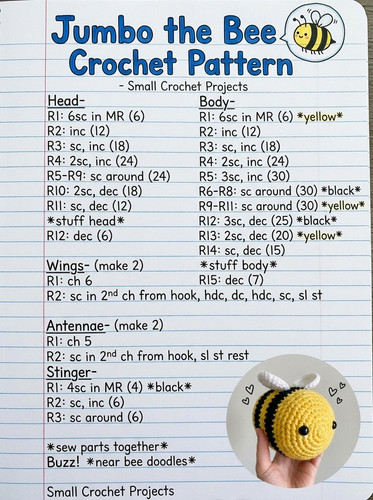 Jumbo the Bee
Crochet Pattern
- Small Crochet Projects
Head-
R1: 6sc in MR (6)
R2: inc (12)
R3: sc, inc (18)
R4: 2sc, inc (24)
R5-R9: sc around (24)
R10: 2sc, dec (18)
R11: sc, dec (12)
*stuff head*
R12: dec (6)
Wings- (make 2)
R1: ch 6
R2: sc in 2nd ch from hook, hdc, dc, hdc, sc, sl st
Body-
R1: 6sc in MR (6) *yellow*
R2: inc (12)
R3: sc, inc (18)
R4: 2sc, inc (24)
R5: 3sc, inc (30)
R6-R8: sc around (30) *black*
R9-R11: sc around (30) *yellow*
R12: 3sc, dec (25) *black*
R13: 2sc, dec (20) *yellow*
R14: sc, dec (15)
*stuff body*
R15: dec (7)
Antennae- (make 2)
R1: ch 5
R2: sc in 2nd ch from hook, sl st rest
Stinger-
R1: 4sc in MR (4) *black*
R2: sc, inc (6)
R3: sc around (6)
*sew parts together*
Buzz! *near bee doodles*
Small Crochet Projects